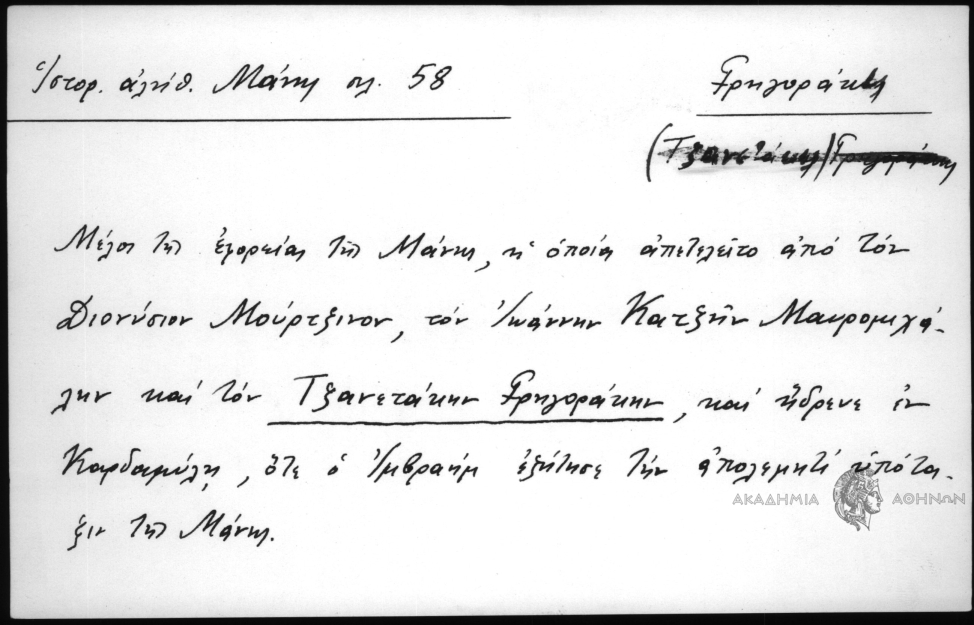 Ἱστορ. ἀλήθ. Μάνης σελ. 58
Γρηγοράκης
(Τζανετάκης) Γρηγοράκης
Μέλος τῆς ἐφορείας τῆς Μάνης, ἡ ὁποία ἀπετελεῖτο ἀπό τόν
Διονύσιον Μούρτζινον, τόν Ἰωάννην Κατζῆν Μαυρομιχά-
λην καί τόν Τζανετάκην Γρηγοράκην, καί ἥδρευε ἐν
Καρδαμύλῃ, ὅτε ὁ Ἰμβραήμ ἐξήτησε τήν ἀπολεμητί ὑπότα-
ξιν τῆς Μάνης.
ΑΚΑΔΗΜΙΑ ΑΘΗΝΩΝ